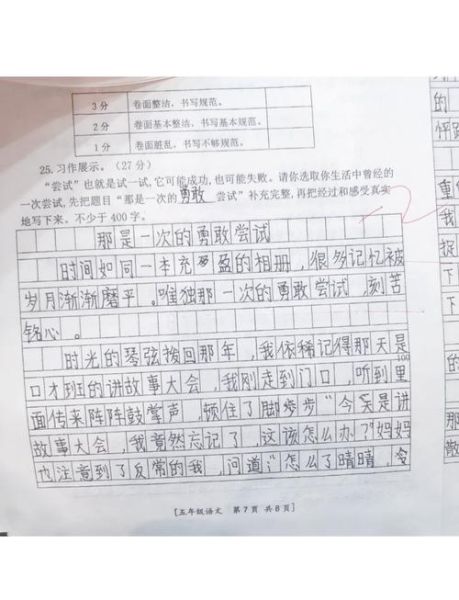 3分 卷面整洁，书写规范。
2分 卷面基本整洁，书写基本规范。
1分 卷面脏乱，书写不够规范。
25. 习作展示。（27分）
“尝试”也就是试一试，它可能成功，也可能失败。请你选取你生活中曾经的
一次尝试，先把题目“那是一次的勇敢 尝试”补充完整，再把经过和感受真实
地写下来。不少于400字。
那是一次的勇敢尝试
时间如同一本充盈的相册，很多记忆被
岁月渐渐磨平。唯独那一次的勇敢尝试，刻苦
铭心。
时光的琴弦拨回那年，我依稀记得那天是
100
口才班的讲故事大会，我刚走到门口，听到里
面传来阵阵鼓掌声，顿住了脚步“今天是讲
故事大会，我竟然忘记了，这该怎么办？”妈妈
也注意到了反常的我，问道：“怎么了晴晴，
[五年级语文 第7页 共8页]
的
重
我
捉
下
下
的
那
散